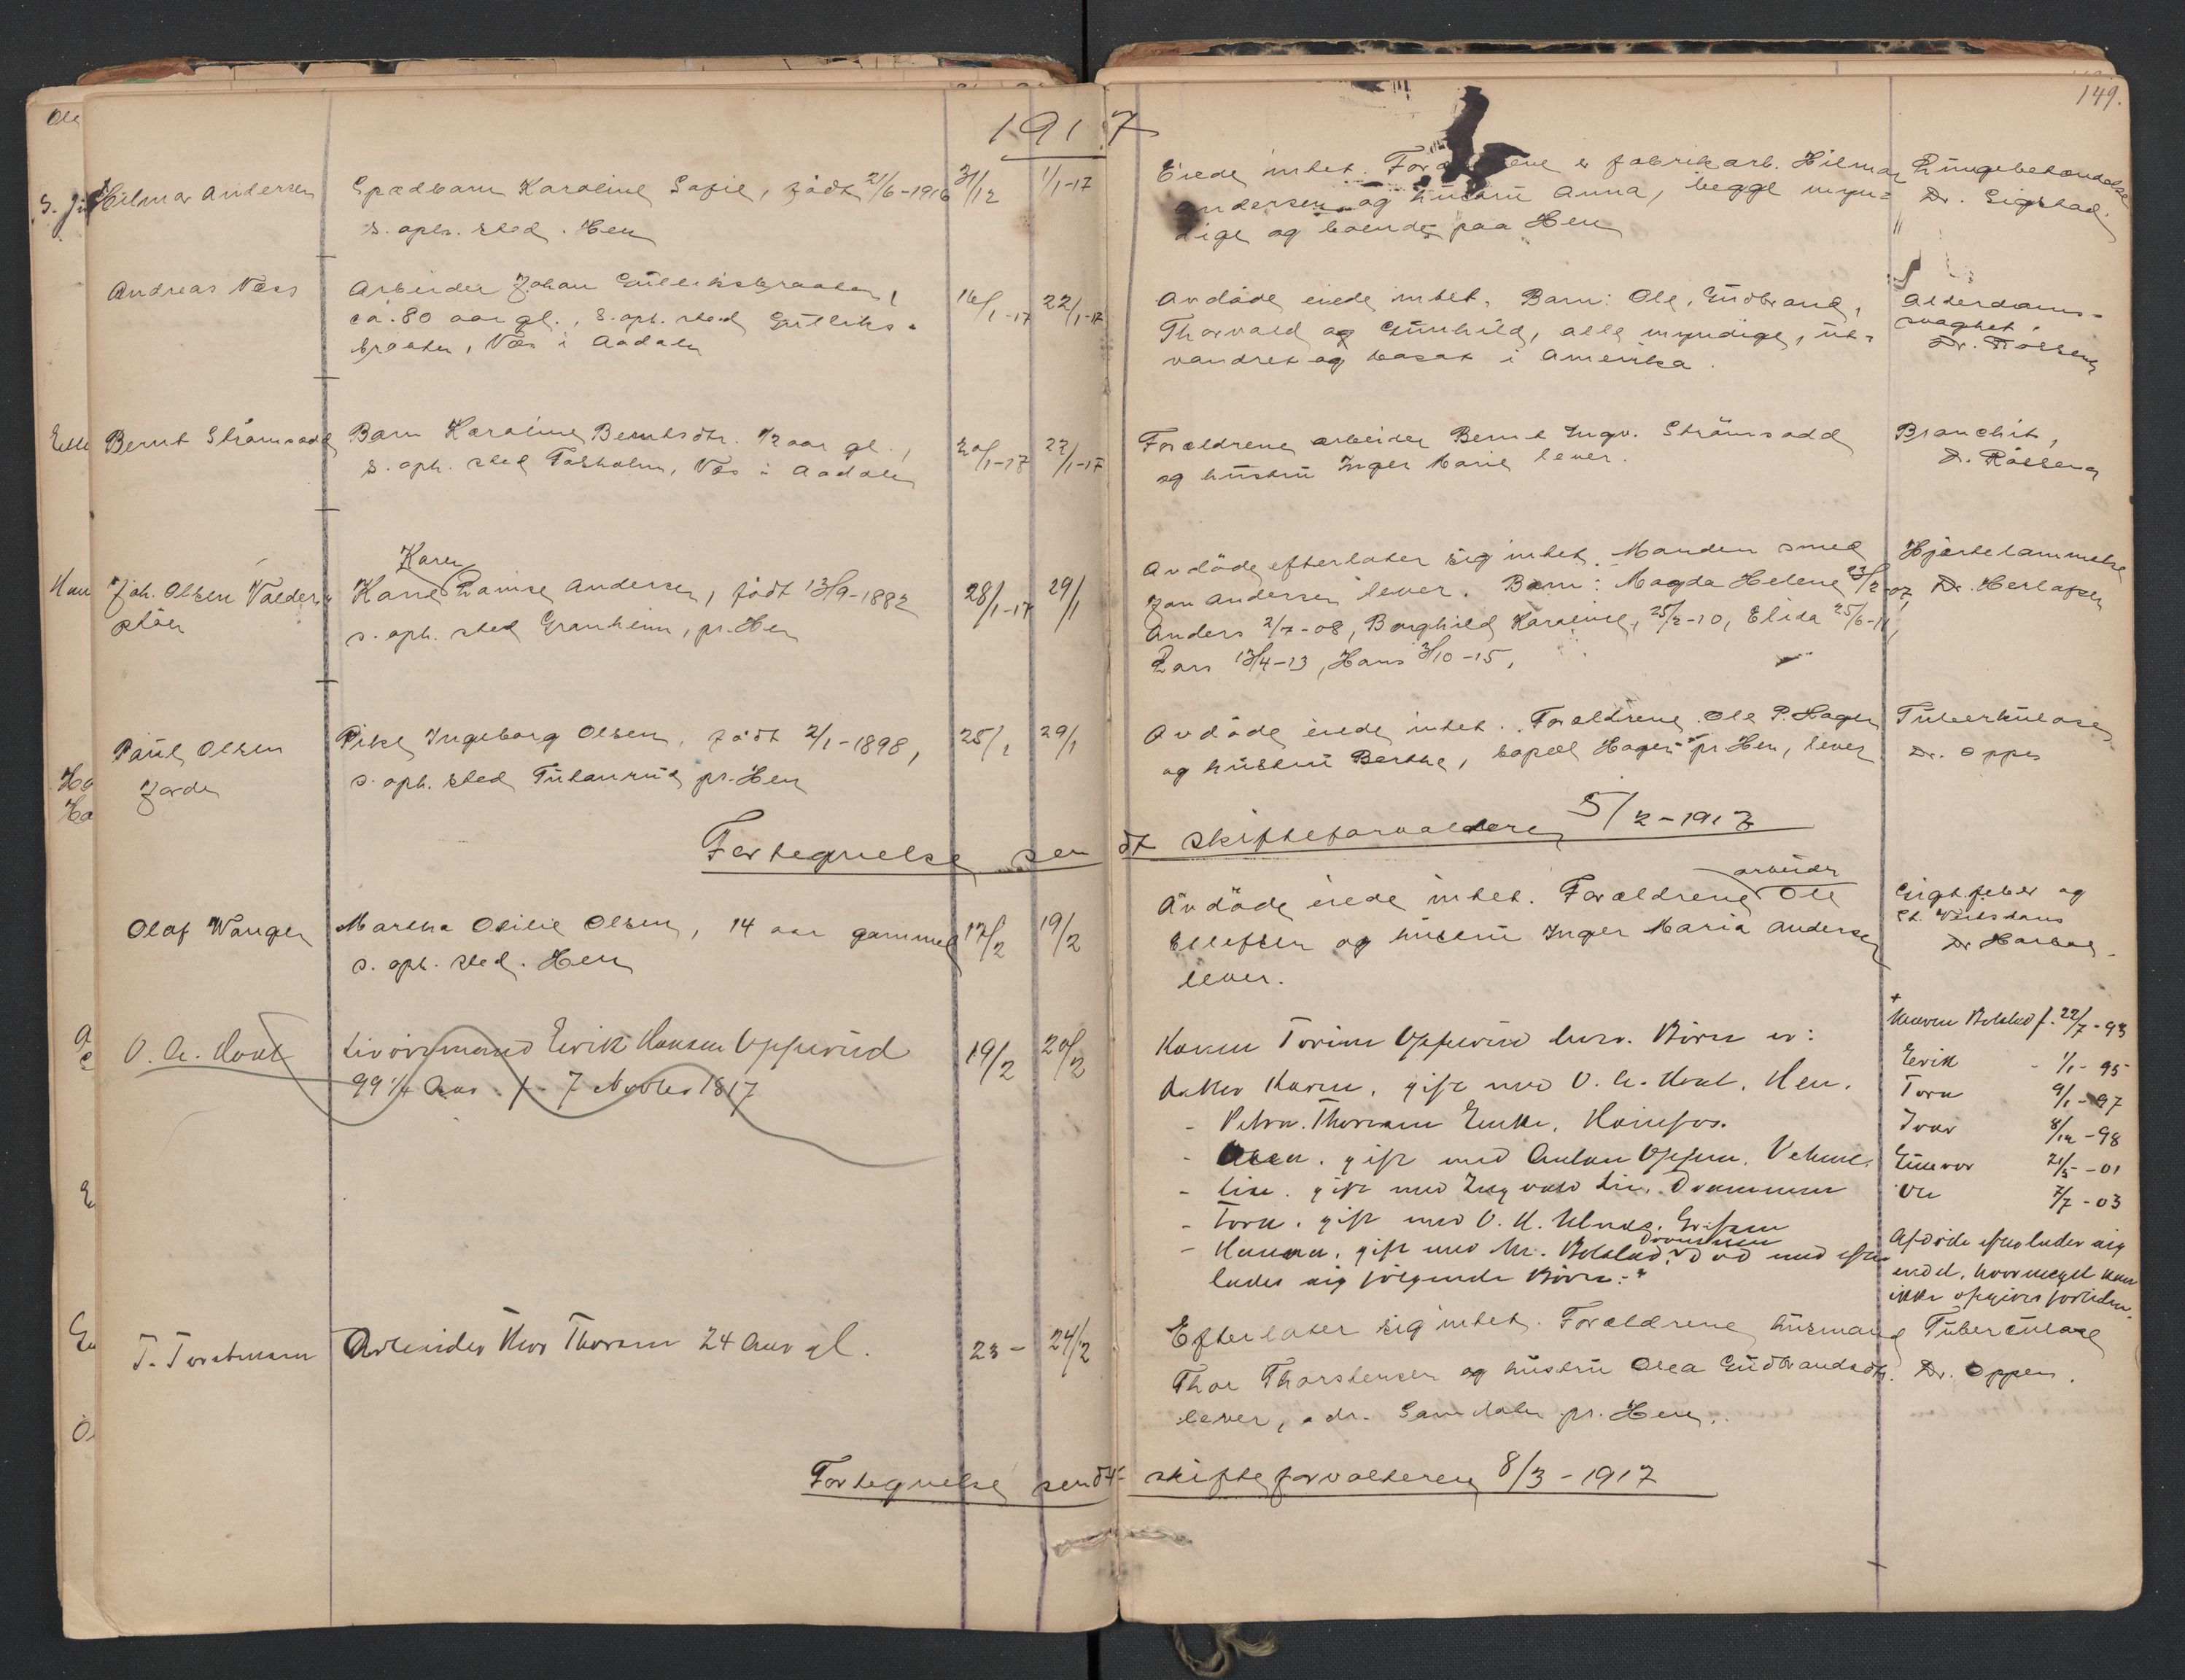 1917
149.
Hilmar Andersen
Spædbarn Karoline Sofie, født 21/6-1916
s. oph. sted. Hen
31/12
1/1-17
Eiede intet. For ene er fabrikarb. Hilmar
Andersen og hustru Anna, begge myn=
dige og boende paa Hen
Lungebetændelse
Dr. Eigstad.
Andreas Næss
Arbeider Johan Gulliksbraaten,
ca. 80 aar gl., s. oph. sted Gulliks=
braaten, Næs i Aadalen
16/1-17
22/1-17
Avdøde eiede intet. Barn: Ole, Gudbrand,
Thorvald og Gunhild, alle myndige, ut=
vandret og bosat i Amerika.
Alderdoms=
svaghet,
Dr.
Bernt Strømsodd
Barn Karoline Berntsdtr. 1/2 aar gl.,
s. oph. sted Fosholm, Næs i Aadalen
20/1-17
22/1-17
Forældrene arbeider Bernt Ingv. Strømsodd
og hustru Inger Marie lever.
Bronchit,
Joh. Olsen Valder=
støen
Karen
Kane Lovise Andersen, født 13/9-1882
s. oph. sted Granheim, pr. Hen
28/1-17
29/1
Avdøde efterlater sig intet. Manden smed
Jon Andersen lever. Barn: Magda Helene 23/2-07,
Anders 2/7-08, Borghild Karoline, 25/2-10, Elida 25/6-11,
Lars 13/4-13, Hans 3/10-15,
Hjertelammelse
Dr. Herlofsen
Paul Olsen
Jorde
Pike Ingeborg Olsen, født 2/1-1898,
s. oph. sted pr. Hen
25/1
29/1
Avdøde eiede intet. Forældrene Ole P. Hagen
og hustru Berthe, bopæl Hagen pr Hen, lever
Tuberkulose
Dr. Oppen
Fortegnelse sendt skifteforvalteren 5/2-1917
Olaf Wangen
Martha Otilie Olsen, 14 aar gammel
s. oph. sted. Hen
17/2
19/2
arbeider
Avdøde eiede intet. Forældrene Ole
Ellefsen og hustru Inger Maria Andersen
lever.
Gigtfeber og
St. Veitsdans
Dr Harboe
O. A. Hoal
Livøremand Eerik Hansen Opperud
99 1/4 Aar. f. 7 Novber 1817
19/2
20/2
Konen Torine Oppegrud lever. Børn er:
Datter Karen, gift med O. A. Hoel, Hen.
- Petra. Thorvam Enke, Hønefos.
- gift med Anton Veme.
- Lise. gift med Ingvald Lie, Drammen
- Torn. gift med O. K.
Drammen
- Hanna. gift med M. Bolstad. Død med efter
lader sig følgende Børn: +
+
Maren Bolstad f. 22/7-93
Eerik - 1/1-95
Tora 9/1-97
Ivar 8/12-98
Gunvor 21/5-01
Ole 7/7-03
Afdøde efterlader sig
endel, hvormeget kan
ikke opgives forliden.
T. Torstensen
Arbeider Thor Thoresen 24 Aar gl.
23 -
24/2
Efterlater sig intet. Forældrene husmand
Thor Thorstensen og hustru Olea Gudbrandsdtr.
lever, adr. pr. Hen.
Tuberculose
Dr. Oppen.
Fortegnelse sendt skifteforvalteren 8/3-1917